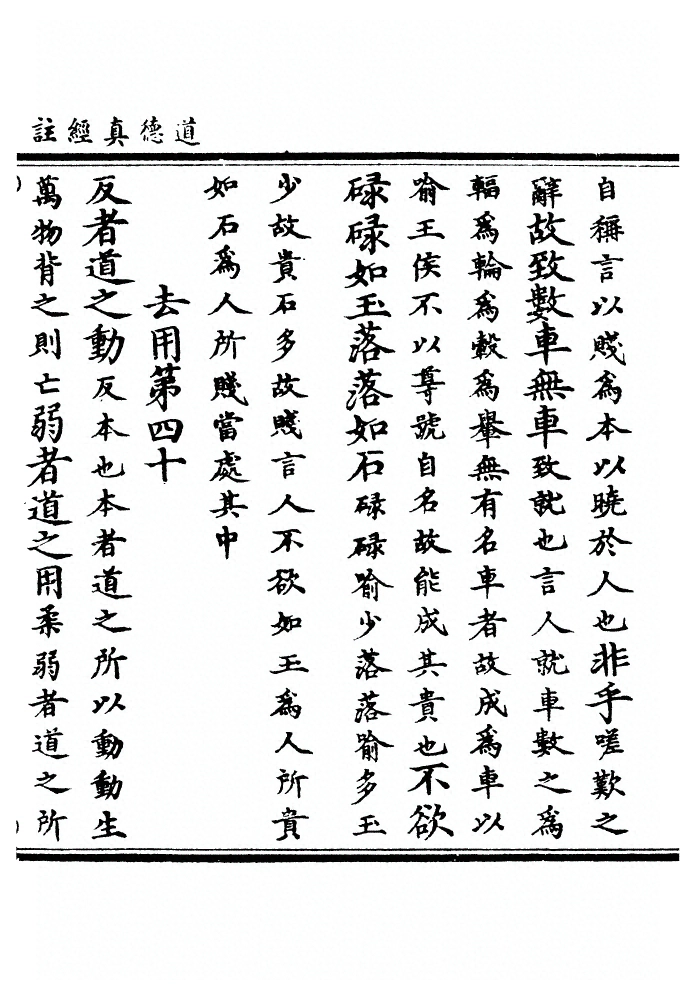 道德真經註
自稱言以賤爲本以曉於人也非乎嗟歎之
辭故致數車無車致就也言人就車數之爲
輻爲輪爲轂爲轝無有名車者故成爲車以
喻王侯不以尊號自名故能成其貴也不欲
碌碌如玉落落如石碌碌喻少落落喻多玉
少故貴石多故賤言人不欲如玉爲人所貴
如石爲人所賤當處其中
去用第四十
反者道之動反本也本者道之所以動動生
萬物背之則亡弱者道之用柔弱者道之所